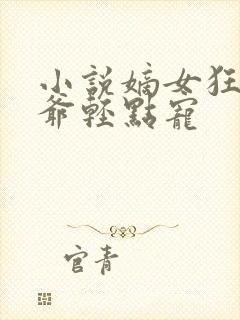 小說嫡女狂
爺輕點寵
官青